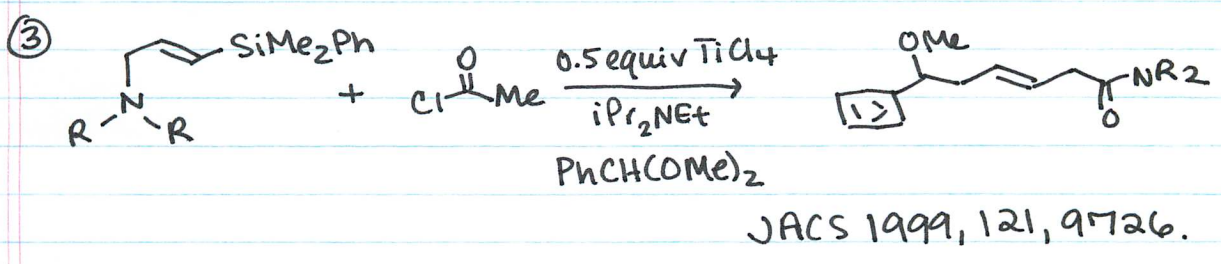 ③
SiMe2Ph
N
R
R
+
Cl
O
Me
0.5 equiv TiCl4
iPr2NEt
PhCH(OMe)2
OMe
NR2
O
JACS 1999, 121, 9726.